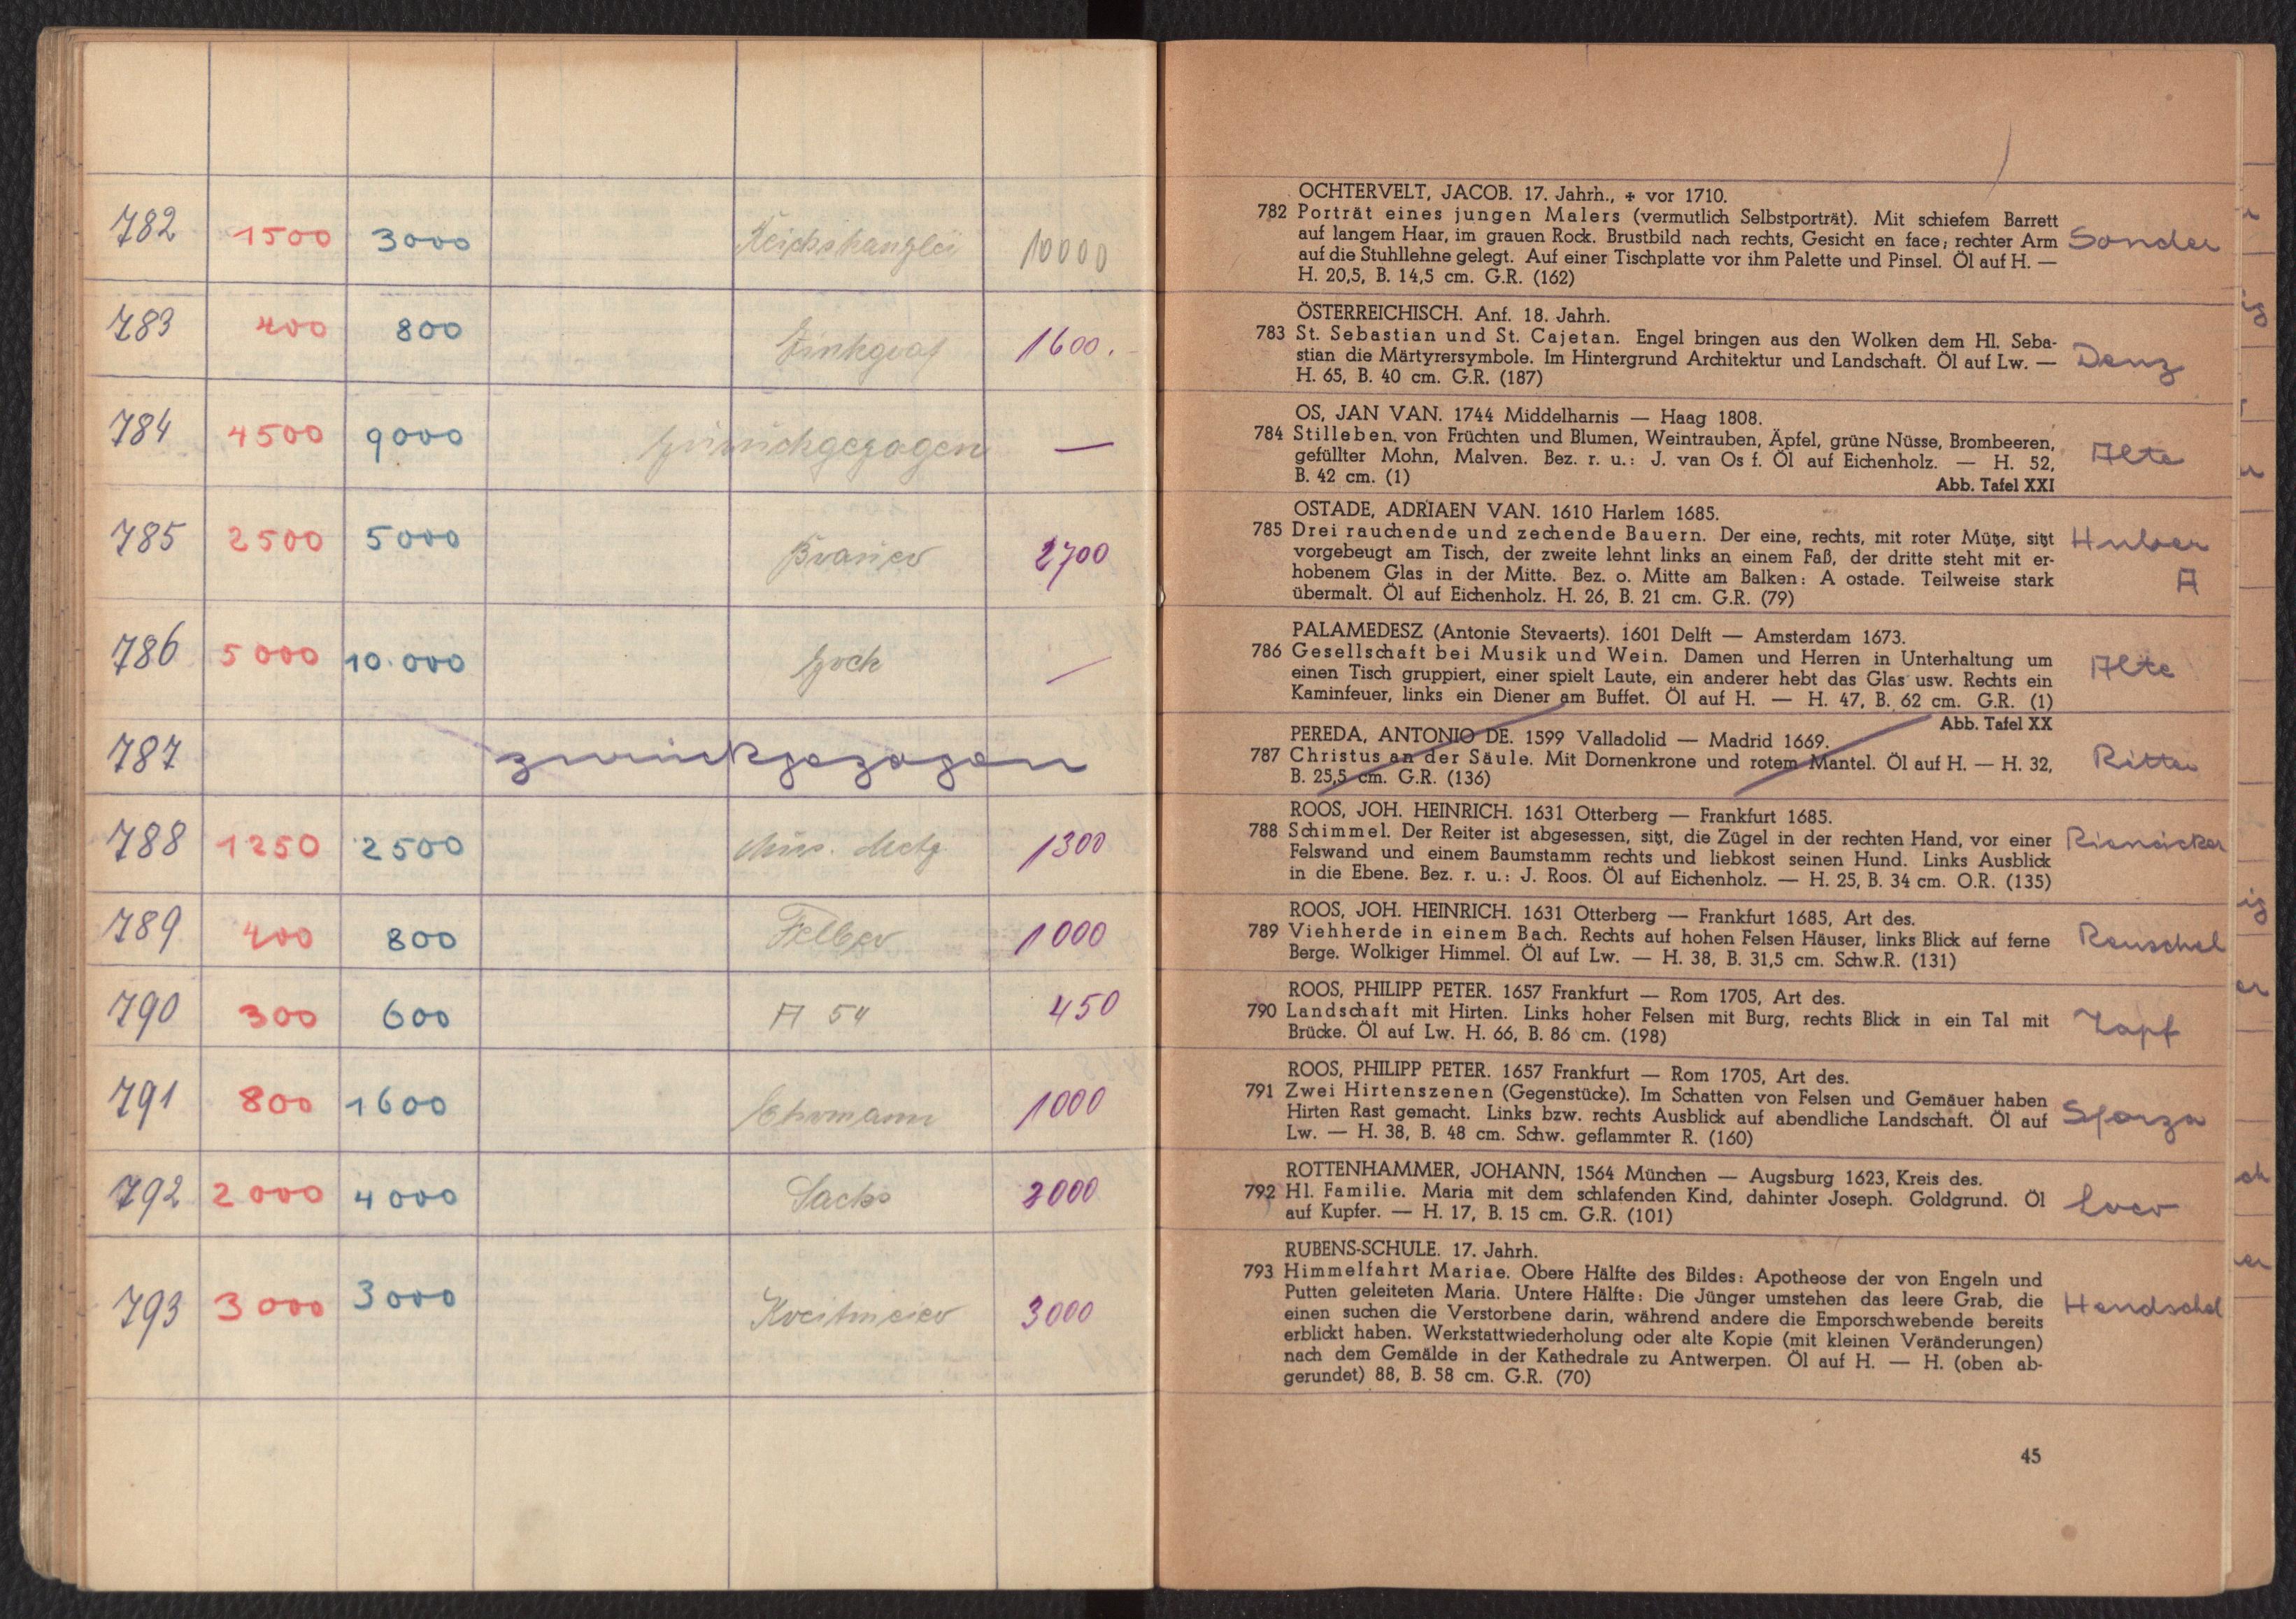 782 1500 3000 Reichskanzlei 10000
783 400 800 Zinkgraf 1600.-
784 4500 9000 zurückgezogen —
785 2500 5000 2700
786 5000 10.000 Hoch —
787 zurückgezogen
788 1250 2500 Mus. Metz 1300
789 400 800 Felber 1000
790 300 600 A 54 450
791 800 1600 Ehrmann 1000
792 2000 4000 Sachs 2000
793 3000 3000 3000
OCHTERVELT, JACOB. 17. Jahrh., + vor 1710.
782 Porträt eines jungen Malers (vermutlich Selbstporträt). Mit schiefem Barrett
auf langem Haar, im grauen Rock. Brustbild nach rechts, Gesicht en face, rechter Arm Sonder
auf die Stuhllehne gelegt. Auf einer Tischplatte vor ihm Palette und Pinsel. Öl auf H. —
H. 20,5, B. 14,5 cm. G.R. (162)
ÖSTERREICHISCH. Anf. 18. Jahrh.
783 St. Sebastian und St. Cajetan. Engel bringen aus den Wolken dem Hl. Seba-
stian die Märtyrersymbole. Im Hintergrund Architektur und Landschaft. Öl auf Lw. — Denz
H. 65, B. 40 cm. G.R. (187)
OS, JAN VAN. 1744 Middelharnis — Haag 1808.
784 Stilleben, von Früchten und Blumen, Weintrauben, Äpfel, grüne Nüsse, Brombeeren,
gefüllter Mohn, Malven. Bez. r. u.: J. van Os f. Öl auf Eichenholz. — H. 52, Alte
B. 42 cm. (1) Abb. Tafel XXI
OSTADE, ADRIAEN VAN. 1610 Harlem 1685.
785 Drei rauchende und zechende Bauern. Der eine, rechts, mit roter Mütze, sitzt Huber
vorgebeugt am Tisch, der zweite lehnt links an einem Faß, der dritte steht mit er-
hobenem Glas in der Mitte. Bez. o. Mitte am Balken: A ostade. Teilweise stark A
übermalt. Öl auf Eichenholz. H. 26, B. 21 cm. G.R. (79)
PALAMEDESZ (Antonie Stevaerts). 1601 Delft — Amsterdam 1673.
786 Gesellschaft bei Musik und Wein. Damen und Herren in Unterhaltung um
einen Tisch gruppiert, einer spielt Laute, ein anderer hebt das Glas usw. Rechts ein Alte
Kaminfeuer, links ein Diener am Buffet. Öl auf H. — H. 47, B. 62 cm. G.R. (1)
Abb. Tafel XX
PEREDA, ANTONIO DE. 1599 Valladolid — Madrid 1669.
787 Christus an der Säule. Mit Dornenkrone und rotem Mantel. Öl auf H. — H. 32, Ritter
B. 25,5 cm. G.R. (136)
ROOS, JOH. HEINRICH. 1631 Otterberg — Frankfurt 1685.
788 Schimmel. Der Reiter ist abgesessen, sitzt, die Zügel in der rechten Hand, vor einer Rienäcker
Felswand und einem Baumstamm rechts und liebkost seinen Hund. Links Ausblick
in die Ebene. Bez. r. u.: J. Roos. Öl auf Eichenholz. — H. 25, B. 34 cm. O.R. (135)
ROOS, JOH. HEINRICH. 1631 Otterberg — Frankfurt 1685, Art des.
789 Viehherde in einem Bach. Rechts auf hohen Felsen Häuser, links Blick auf ferne Reuschel
Berge. Wolkiger Himmel. Öl auf Lw. — H. 38, B. 31,5 cm. Schw.R. (131)
ROOS, PHILIPP PETER. 1657 Frankfurt — Rom 1705, Art des.
790 Landschaft mit Hirten. Links hoher Felsen mit Burg, rechts Blick in ein Tal mit Zapf
Brücke. Öl auf Lw. H. 66, B. 86 cm. (198)
ROOS, PHILIPP PETER. 1657 Frankfurt — Rom 1705, Art des.
791 Zwei Hirtenszenen (Gegenstücke). Im Schatten von Felsen und Gemäuer haben
Hirten Rast gemacht. Links bzw. rechts Ausblick auf abendliche Landschaft. Öl auf Sforza
Lw. — H. 38, B. 48 cm. Schw. geflammter R. (160)
ROTTENHAMMER, JOHANN, 1564 München — Augsburg 1623, Kreis des.
792 Hl. Familie. Maria mit dem schlafenden Kind, dahinter Joseph. Goldgrund. Öl
auf Kupfer. — H. 17, B. 15 cm. G.R. (101)
RUBENS-SCHULE. 17. Jahrh.
793 Himmelfahrt Mariae. Obere Hälfte des Bildes: Apotheose der von Engeln und
Putten geleiteten Maria. Untere Hälfte: Die Jünger umstehen das leere Grab, die Hendschel
einen suchen die Verstorbene darin, während andere die Emporschwebende bereits
erblickt haben. Werkstattwiederholung oder alte Kopie (mit kleinen Veränderungen)
nach dem Gemälde in der Kathedrale zu Antwerpen. Öl auf H. — H. (oben ab-
gerundet) 88, B. 58 cm. G.R. (70)
45